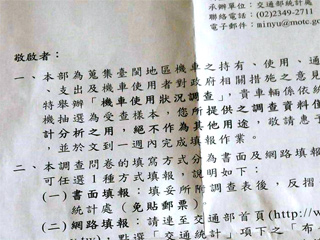 承辦單位：交通部統計處
聯絡電話：(02)2349-2711
電子郵件：minyu@motc.go
敬啟者：
一、本部為蒐集臺閩地區機車之持有、使用、通
、支出及機車使用者對政府相關措施之意見
特舉辦「機車使用狀況調查」，貴車輛係依統
機抽選為受查樣本，您所提供之調查資料僅
計分析之用，絕不作為其他用途，敬請惠予
，並於文到一週內完成填報作業。
二、本調查問卷的填寫方式分為書面及網路填報
可任選1種方式填報，說明如下：
(一)書面填報：填妥所附調查表後，反摺
統計處（免貼郵票）。
(二)網路填報：請連至交通部首頁(http://w
，點選「交通統計」項下之「布